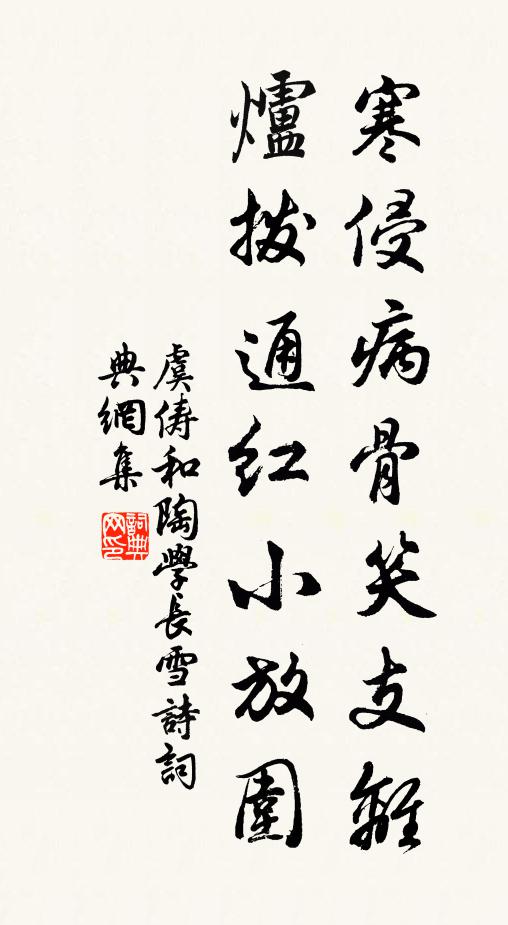 寒侵病骨笑支離
爐撥通紅小放圍
虞儔和陶學長雪詩詞
典網集
詞典
网印